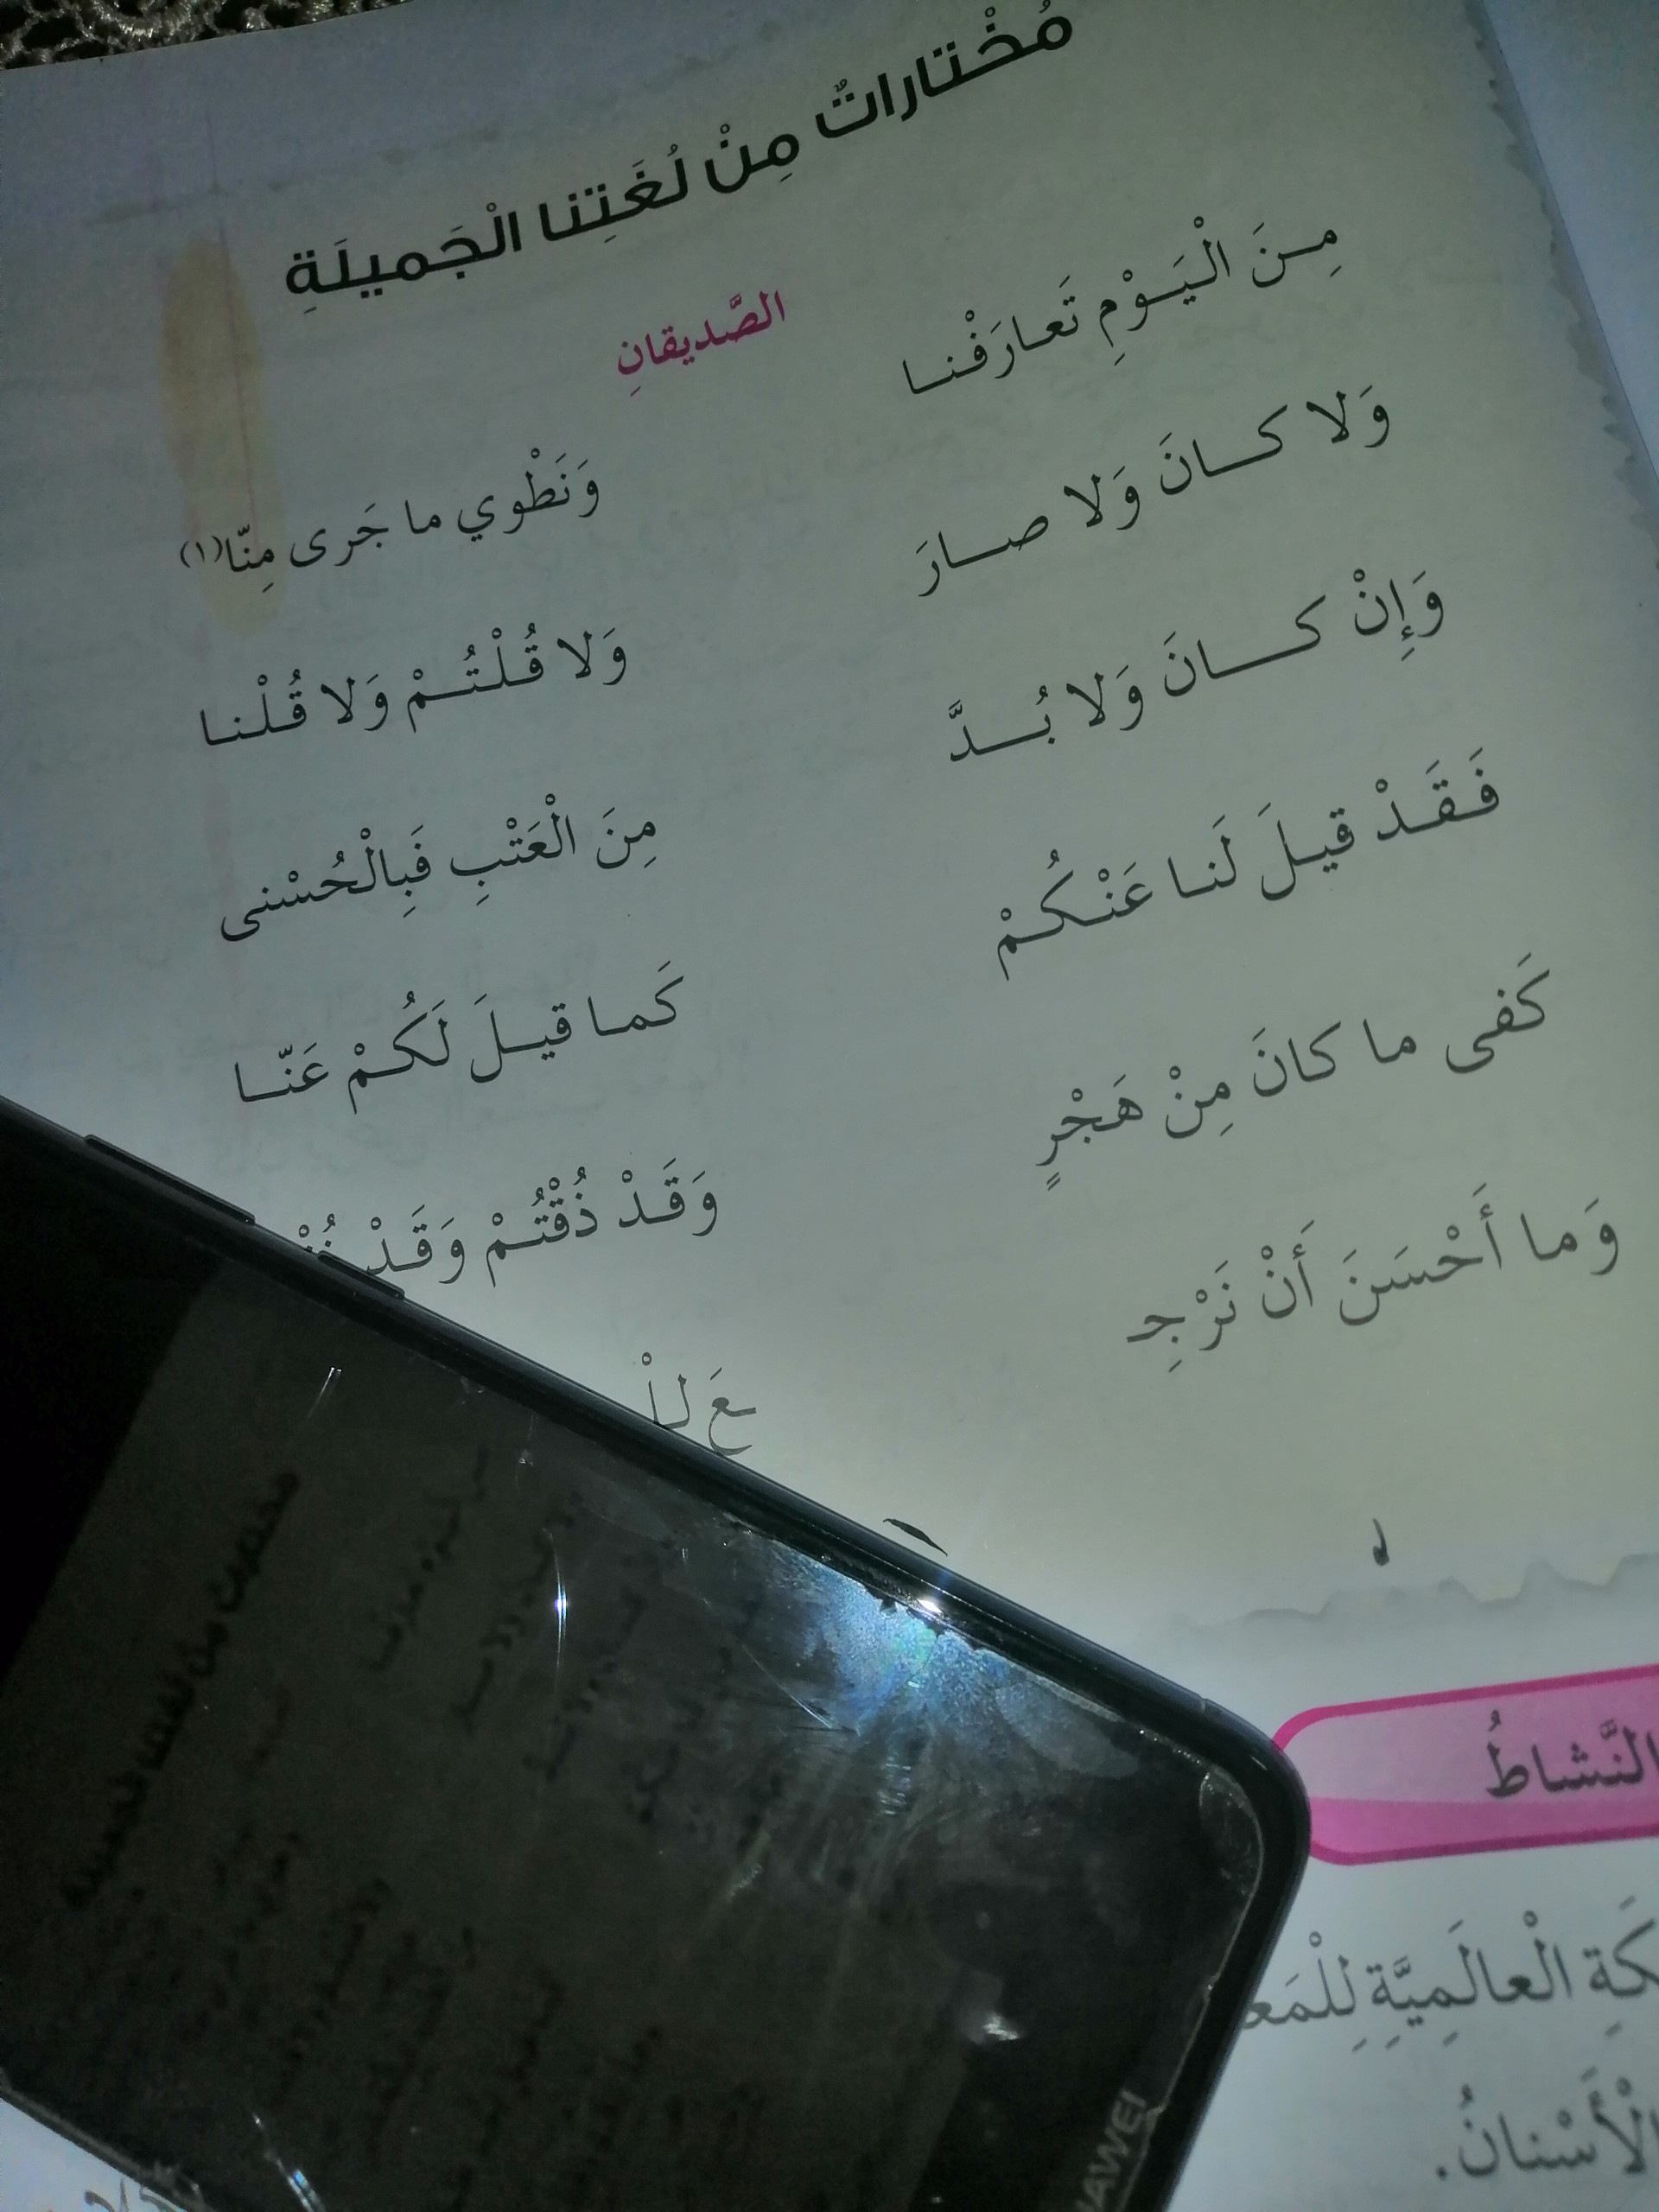 مُخْتاراتٌ مِنْ لُغَتِنا الْجَميلَةِ
الصَّديقانِ
مِـنَ الْيَـوْمِ تَعـارَفْنـا وَنَطْوي ما جَرى مِنّا(١)
وَلا كـانَ وَلا صـارَ وَلا قُـلْتُـمْ وَلا قُـلْنـا
وَإِنْ كـانَ وَلا بُـدَّ مِنَ الْعَتْبِ فَبِالْحُسْنى
فَـقَـدْ قيـلَ لَنـا عَنْـكُمْ كَمـا قيـلَ لَكُمْ عَنّـا
كَفى ما كانَ مِنْ هَجْرٍ وَقَـدْ ذُقْتُـمْ وَقَـدْ
وَما أَحْسَنَ أَنْ نَرْجِـ ـعَ للْـ
النَّشاطُ
كَةِ الْعالَمِيَّةِ لِلْمَعـ
الْأَسْنانُ.
HUAWEI